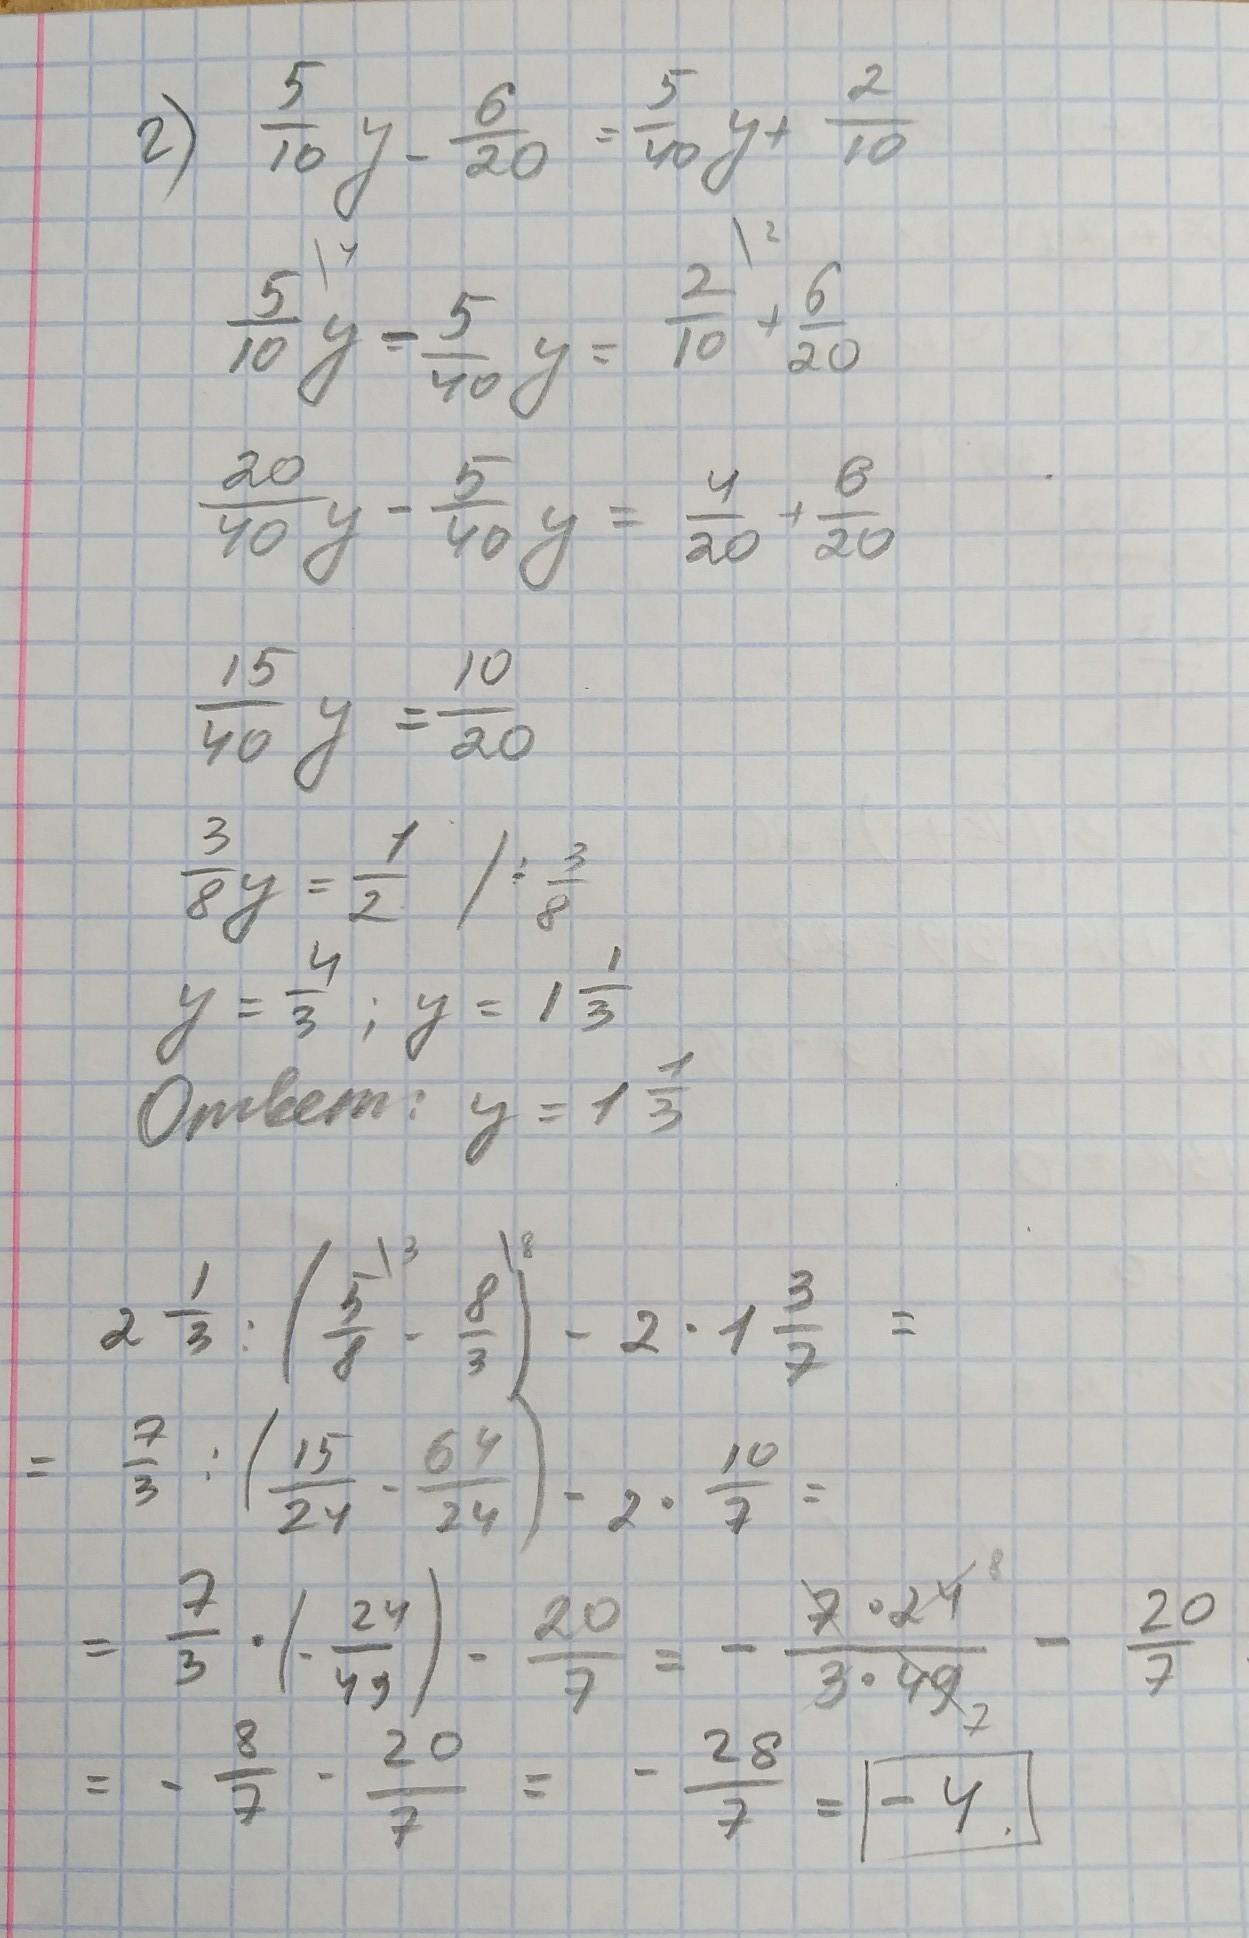 2) 5/10 y - 6/20 = 5/40 y + 2/10
5/10 \4 y - 5/40 y = 2/10 \2 + 6/20
20/40 y - 5/40 y = 4/20 + 6/20
15/40 y = 10/20
3/8 y = 1/2 / : 3/8
y = 4/3 ; y = 1 1/3
Ответ: y = 1 1/3
2 1/3 : (5/8 \3 - 8/3 \8) - 2 · 1 3/7 =
= 7/3 : (15/24 - 64/24) - 2 · 10/7 =
= 7/3 · (- 24/49) - 20/7 = - 7 · 24 8/3 · 49 7 - 20/7
= - 8/7 - 20/7 = - 28/7 = - 4.